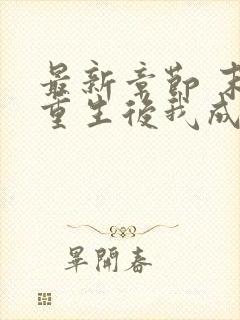 最新章節 末
重生後我成
畢開春